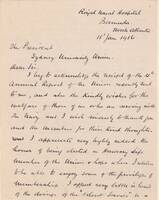 Royal Naval Hospital
Bermuda
North Atlantic
15th Jan 1916
The President
Sydney University Union
Dear Sir,
I beg to acknowledge the receipt of the
Annual Report of the Union recently sent
to me and also the kindly wishes for the
welfare of those of us who are serving with
the Navy and I wish sincerely to thank you
and the members for their kind thoughts.
I appreciate very highly indeed the
honour of being elected a Honorary Life
Member of the Union & hope when I return
to be able to enjoy some of the privileges of
Membership. I opened very little in front
of the doings of the